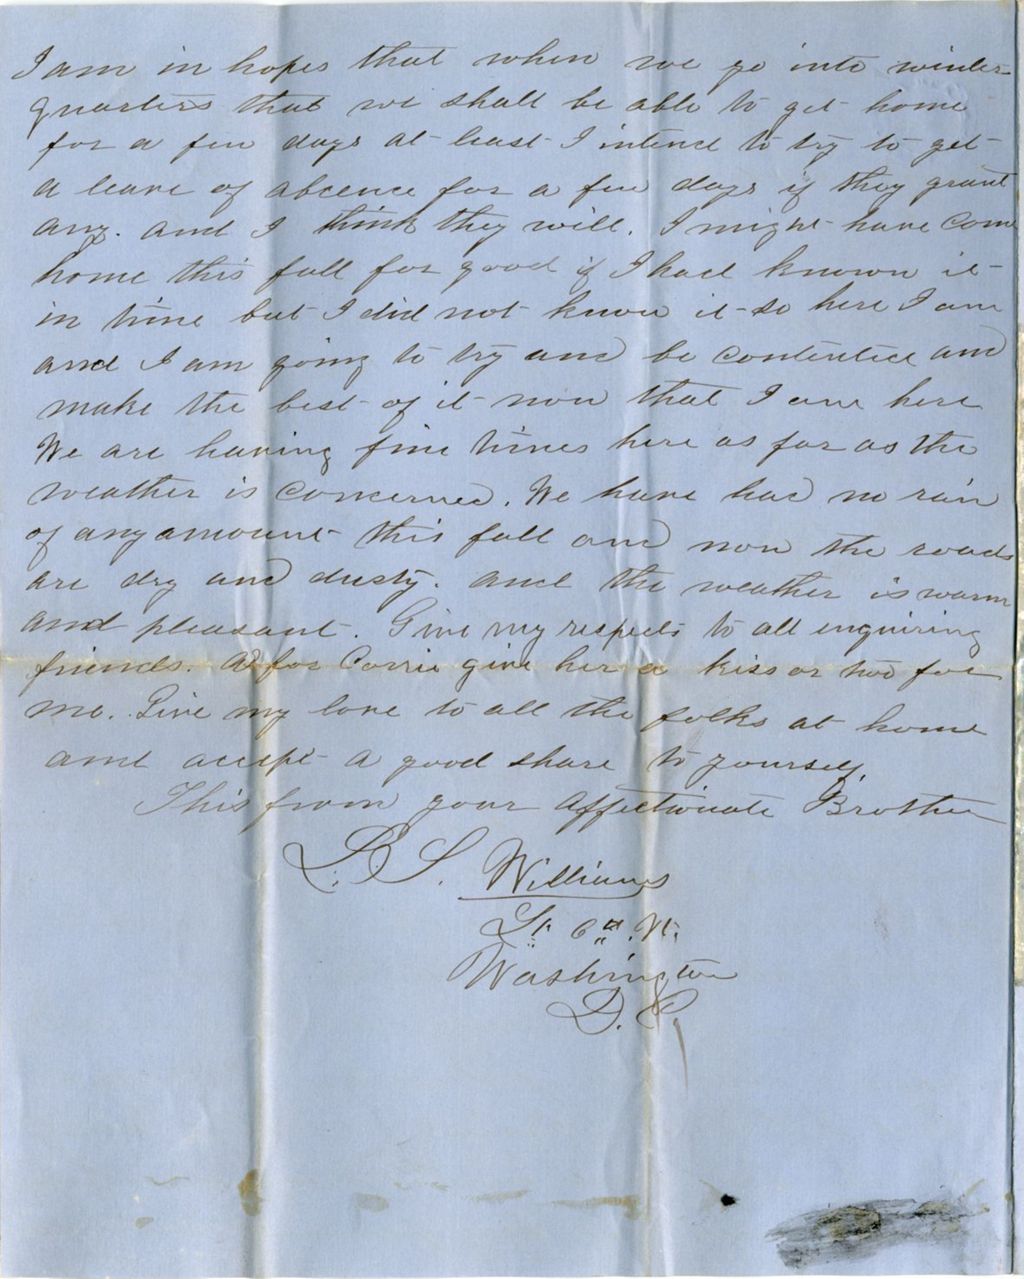 I am in hopes that when we go into winter
quarters that we shall be able to get home
for a few days at least I intend to try to get
a leave of abcence for a few days if they grant
any. and I think they will. I might have come
home this fall for good if I had known it
in time but I did not know it so here I am
and I am going to try and be contented and
make the best of it now that I am here
We are having fine times here as far as the
weather is concerned. We have had no rain
of any amount this fall and now the roads
are dry and dusty. and the weather is warm
and pleasant. Give my respects to all enquiring
friends. As for Carrie give her a kiss or two for
me. Give my love to all the folks at home
and accept a good share to yourself.
This from your affectionate Brother
S. Williams
Lt. 6th Vt.
Washington
D.C.